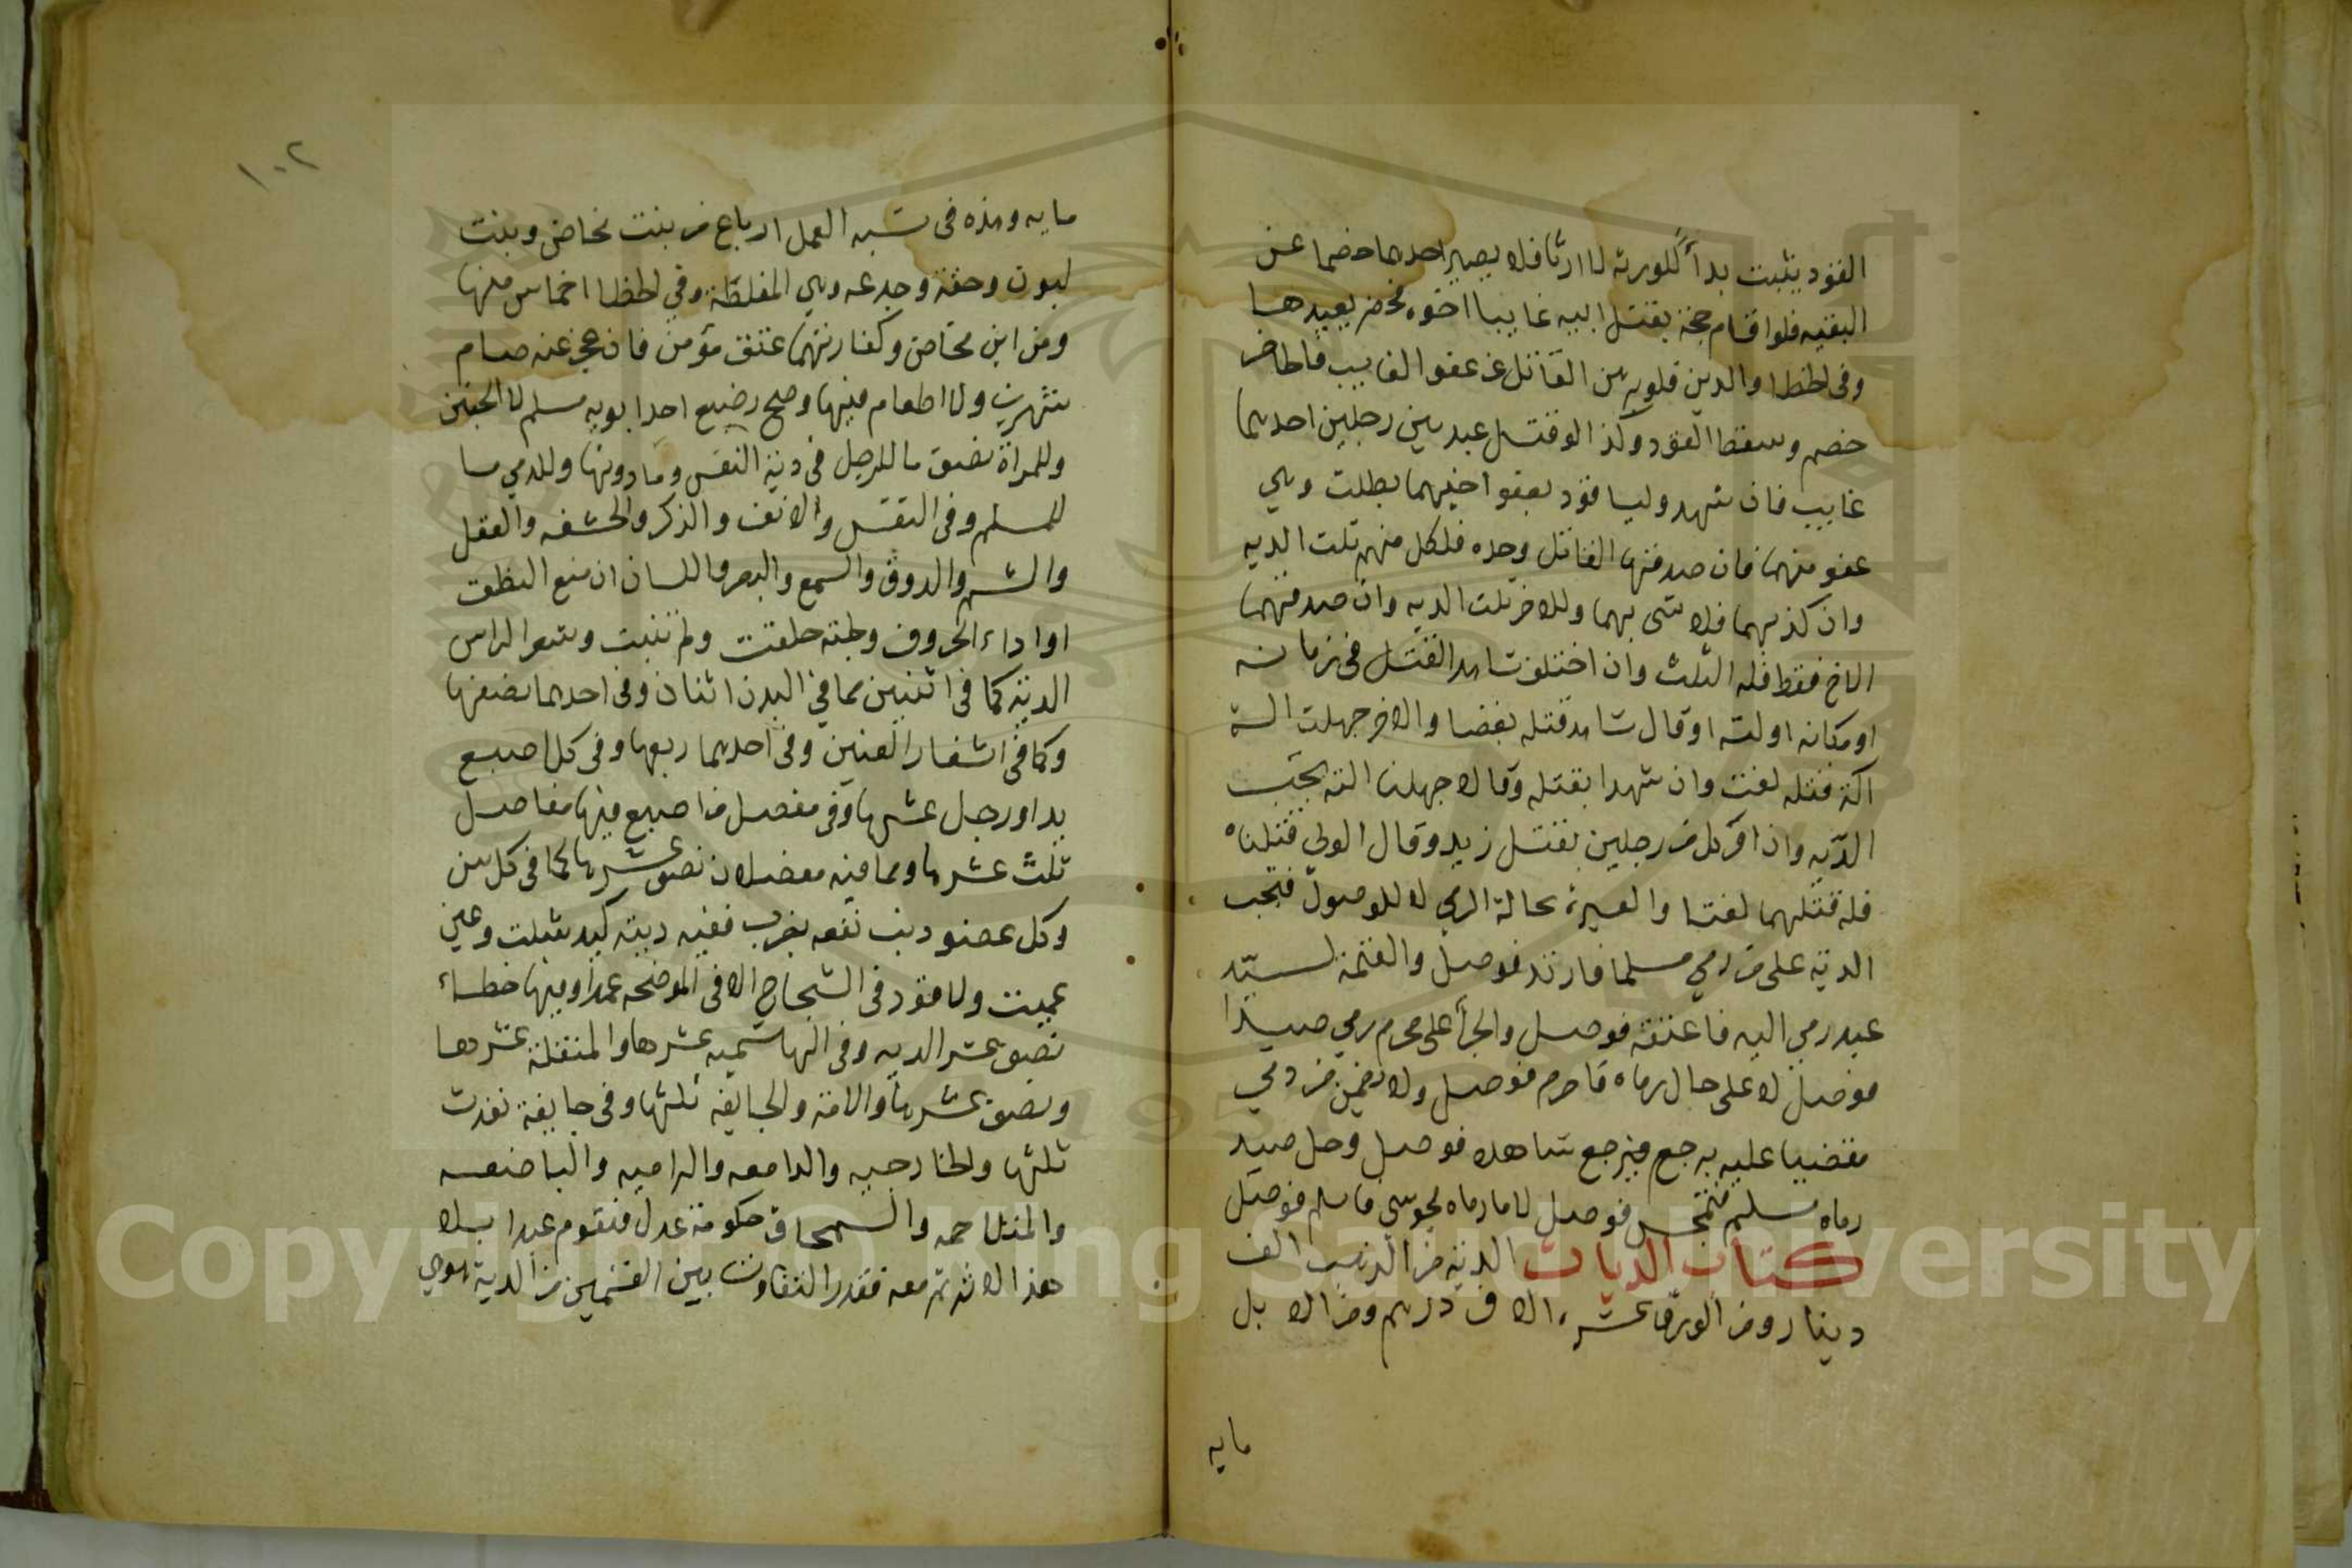 القود يثبت بدأ للورثة لا ارثا فلا يصير احدهما خصما عن
البقيه فلو اقام حجة بقتل ابيه غايبا اخوه فحضر يعيدها
وفي الخطا والدين فلو برهن القاتل عن عفو الغايب فالحاضر
خصم وسقط القود وكذا لو قتل عبد بين رجلين احدهما
غايب فان شهد وليا قود بعفو اخيهما بطلت وهي
عفو منهما فان صدقها القاتل وحده فلكل منهم ثلث الديه
وان كذبهما فلا شى بهما وللاخر ثلث الديه وان صدقهما
الاخ فقط فله الثلث وان اختلف شاهدا القتل في زمانه
او مكانه او لته او قال شاهد قتله بعصا والاخر جهلت الة
اكة قتله لغت وان شهدا بقتله وقالا جهلنا الته تجب
الديه وان اقر كل من رجلين بقتل زيد وقال الولي قتلتماه
فله قتلهما لغتا والعبرة بحالة الرمي لا للوصول فتجب
الدية على من رمي مسلما فارتد فوصل والقيمة لسيد
عبد رمى اليه فاعتقه فوصل والجزأ على محرم رمي صيدا
فوصل لا على حال رماه فاحرم فوصل ولا يضمن من رمي
مقضيا عليه برجع فيرجع شاهده فوصل وحل صيد
رماه مسلم فتمجس فوصل لا ما رماه مجوسي فاسلم فوصل
كتاب الديات الدية من الذهب الف
دينار ومن الورق عشرة الاف درهم ومن الابل
مايه
١٠٢
مايه وهذه في شبه العمد ارباع من بنت مخاض وبنت
لبون وحقة وجدعه وهي المغلظة وفي الخطا اخماس منها
ومن ابن مخاض وكفارتهما عتق مؤمن فان عجز عنه صام
شهرين ولا اطعام فيها وصح رضيع احد ابويه مسلم لا الجنين
وللمراة نصف ما للرجل في دية النفس وما دونها وللدمي ما
للمسلم وفي النفس والانف والذكر والحشفه والعقل
والشم والدوق والسمع والبصر واللسان ان منع النطق
او اداء الحروف ولحية حلقت ولم تنبت وشعر الراس
الدية كما في اثنين مما في البدن اثنان وفي احدهما نصفها
وكما في اشفار العينين وفي احدهما ربعها وفي كل اصبع
يد او رجل عشرها وفي مفصل من اصبع فيها مفاصل
ثلث عشرها ومما فيه مفصلان نصف عشرها كما في كل سن
وكل عضو دهب نفعه بضرب ففيه ديته كيد شلت وعين
عميت ولا قود في الشجاج الا في الموضحه عمدا وفيها خطاء
نصف عشر الديه وفي الهاشميه عشرها والمنقلة عشرها
ونصف عشرها والامة والجايفه ثلثها وفي جايفة نفدت
ثلثها والخارجيه والدامعه والداميه والباضعه
والمتلاحمه والسمحاق حكومة عدل فيقوم عبدا بلا
هذا الاثر ثم معه فقدر التفاوت بين القيمين من الدية هو هي
Copyright © King Saud University